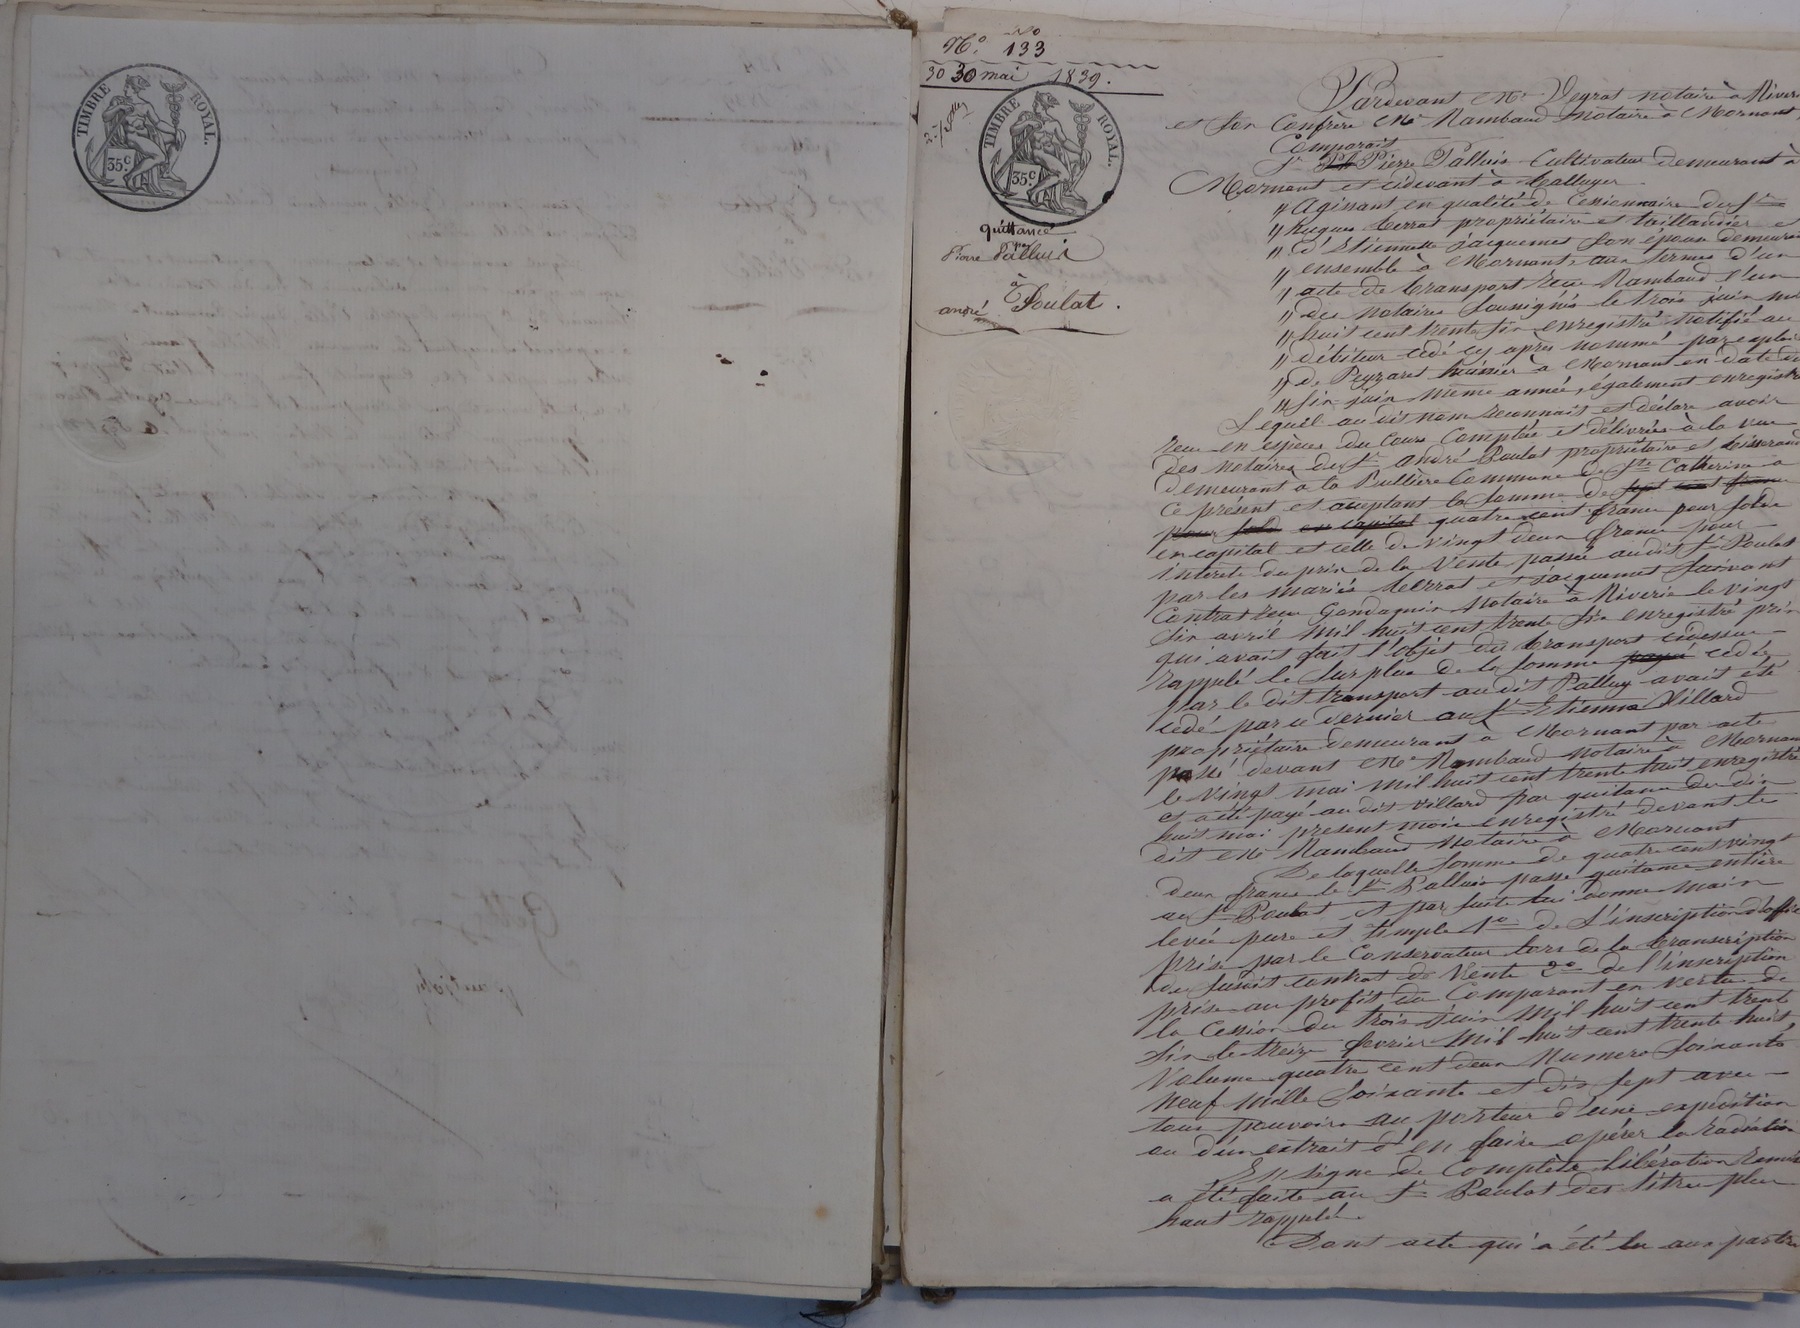 TIMBRE ROYAL.
35 c
N.o 133
30 30 mai 1839.
TIMBRE ROYAL.
35 c
quittance
par
Pierre Palluis
à
andré Poulat.
Pardevant Me Veyrat notaire à Riverie
et son Confrère Me Rambaud notaire à Mornant,
Comparait
Sr Pierre Palluis Cultivateur demeurant à
Mornant et cidevant à
" Agissant en qualité de Cessionnaire du Sr
" hugues propriétaire et taillandier et
" d'Etiennette Jacquemet son épouse demeurant
" ensemble à Mornant, aux termes d'un
" acte de transport reçu Rambaud l'un
" des notaires Soussignés le trois juin mil
" huit cent trente six enregistré notifié au
" débiteur cédé cy après nommé par exploit
" de Peyzaret huissier à Mornant en date du
" six juin même année, également enregistré
Lequel au dit nom reconnait et déclare avoir
reçu en espèces du Cours Comptées et délivrées à la vue
des notaires du Sr André Poulat propriétaire et tisserand
demeurant à la Commune de Ste Catherine à
ce présent et acceptant la Somme de sept cent francs
pour solde en capital quatre cent francs pour solde
en capital et celle de vingt deux francs pour
intérêts du prix de la Vente passée audit Sr Poulat
par les mariés et Jacquemet suivant
Contrat reçu Gondaguin Notaire à Riverie le vingt
six avril mil huit cent trente six enregistré prix
qui avait fait l'objet du transport cidessus
rappelé le Surplus de la Somme payé cedée
par le dit transport audit Palluy avait été
cédé par ce dernier au Sr Etienne Villard
propriétaire demeurant à Mornant par acte
passé devant Me Rambaud notaire à Mornant
le vingt mai mil huit cent trente huit enregistré
et a été payé au dit Villard par quitance du dix
huit mai présent mois enregistré devant le
dit Me Rambaud Notaire à Mornant
De laquelle Somme de quatre cent vingt
deux francs le Sr Palluis passe quitance entière
au Sr Poulat et par suite lui donne main
levée pure et simple 1o de l'inscription d'office
prise par le Conservateur lors de la transcription
du susdit contrat de Vente 2o de l'inscription
prise au profit du Comparant en vertu de
la Cession du trois Juin mil huit cent trente
six le treize fevrier mil huit cent trente huit,
Volume quatre cent deux Numero Soixante
neuf mille Soixante et dix sept avec
tous pouvoirs au porteur d'une expédition
ou d'un extrait d'en faire opérer la radiation
En signe de Complète libération remise
a été faite au Sr Poulat des titres plus
haut rappelés
Dont acte qui a été lu aux parties